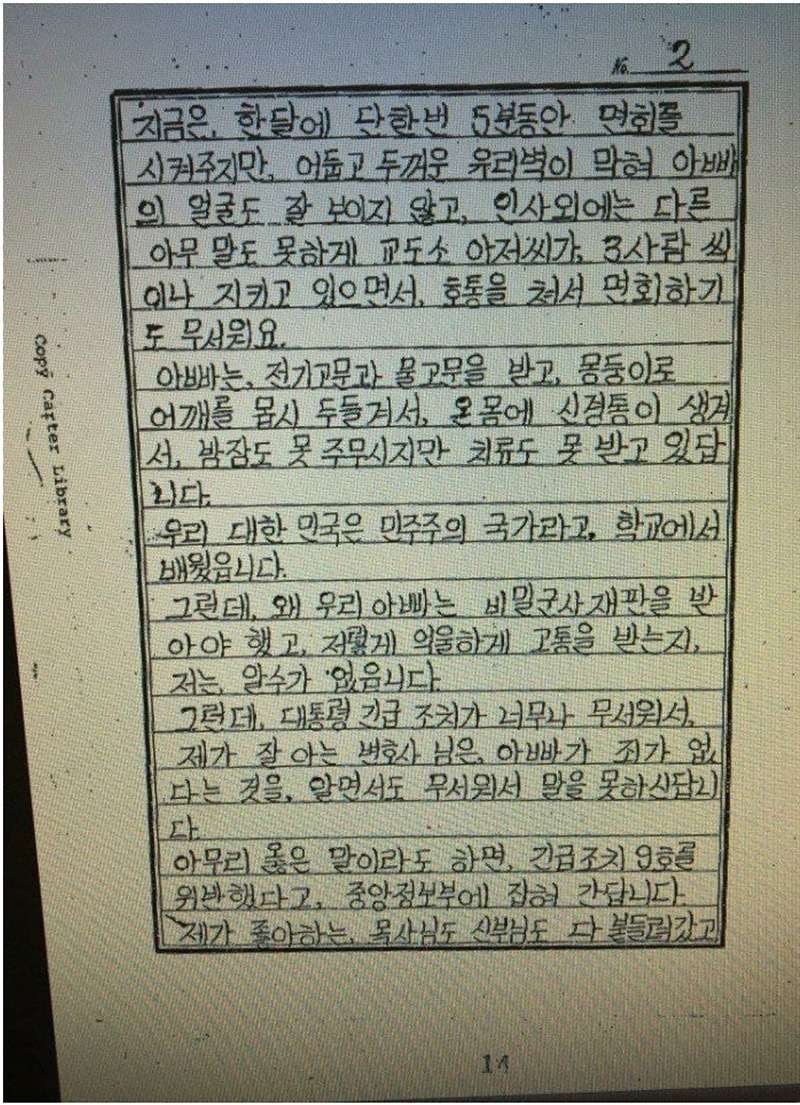 No. 2
지금은, 한달에 단한번 5분동안 면회를
시켜주지만, 어둡고 두꺼운 유리벽이 막혀 아빠
의 얼굴도 잘 보이지 않고, 인사외에는 다른
아무 말도 못하게 교도소 아저씨가, 3사람 씩
이나 지키고 있으면서, 호통을 쳐서 면회하기
도 무서워요.
아빠는, 전기고문과 물고문을 받고, 몽둥이로
어깨를 몹시 두들겨서, 온몸에 신경통이 생겨
서, 밤잠도 못 주무시지만 치료도 못 받고 있답
니다.
우리 대한 민국은 민주주의 국가라고, 학교에서
배웠읍니다.
그런데, 왜 우리 아빠는 비밀군사재판을 받
아야 했고, 저렇게 억울하게 고통을 받는지,
저는, 알수가 없읍니다.
그런데, 대통령 긴급 조치가 너무나 무서워서,
제가 잘 아는 변호사 님은, 아빠가 죄가 없
다는 것을, 알면서도 무서워서 말을 못하신답니
다.
아무리 옳은 말이라도 하면, 긴급조치 9호를
위반했다고, 중앙정보부에 잡혀 간답니다.
제가 좋아하는, 목사님도 신부님도 다 붙들려갔고
Copy Carter Library
14